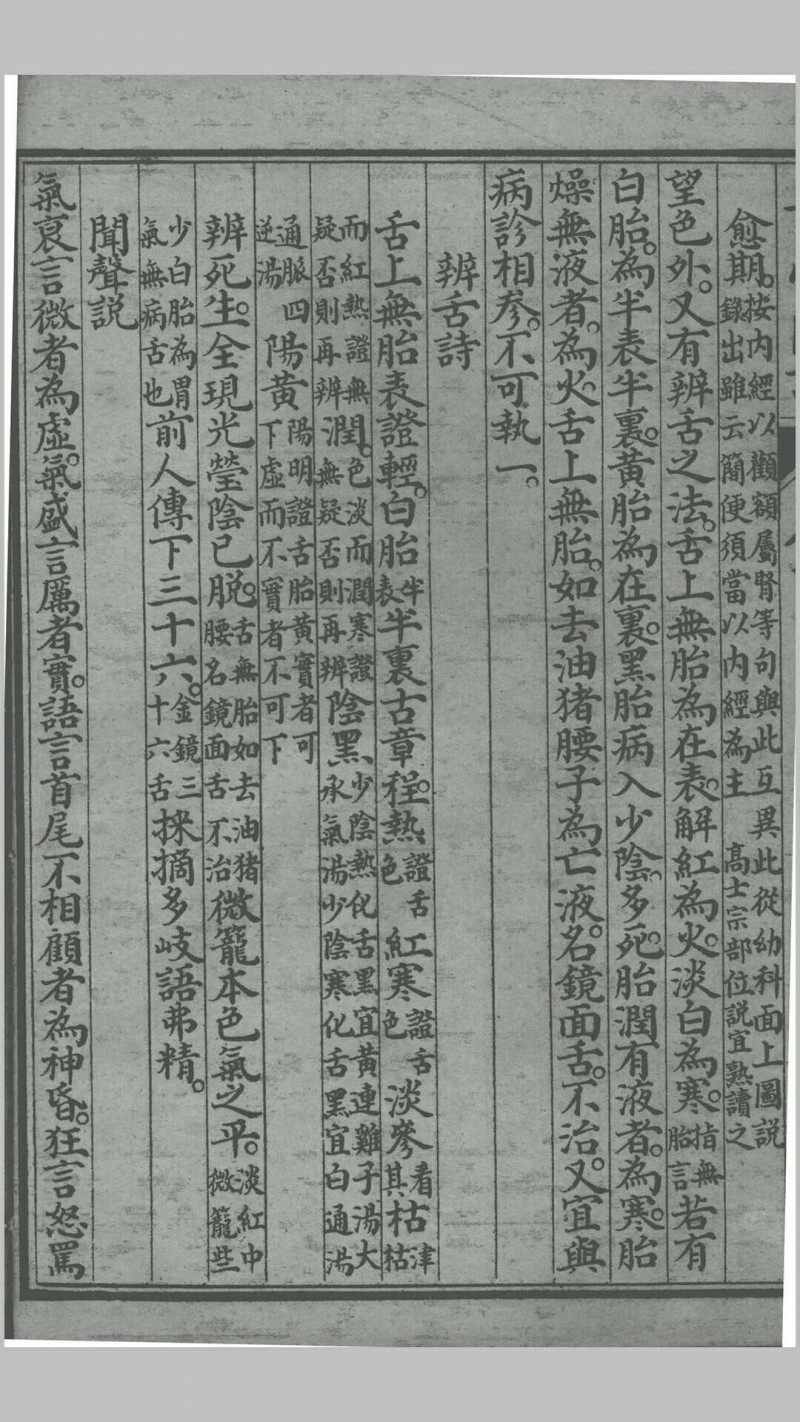 愈期。按內經以顴額屬腎等句與此互異此從幼科面上圖說錄出雖云簡便須當以內經為主　高士宗部位說宜熟讀之
望色外。又有辨舌之法。舌上無胎為在表。解紅為火。淡白為寒。指無胎言若有
白胎。為半表半裏。黃胎為在裏。黑胎病入少陰。多死。胎潤有液者。為寒。胎
燥無液者。為火。舌上無胎。如去油猪腰子為亡液。名鏡面舌。不治。又宜與
病診相參。不可執一。
辨舌詩
舌上無胎表證輕。白胎半表半裏古章程。熱證舌色紅寒證舌色淡參看其枯津枯
而紅熱證無疑否則再辨潤。色淡而潤寒證無疑否則再辨陰黑少陰熱化舌黑宜黃連雞子湯大承氣湯少陰寒化舌黑宜白通湯
通脈四逆湯陽黃陽明證舌胎黃實者可下虛而不實者不可下
辨死生。全現光瑩陰已脫。舌無胎如去油猪腰名鏡面舌不治微籠本色氣之平。淡紅中微籠些
少白胎為胃氣無病舌也前人傳下三十六。金鏡三十六舌採摘多岐語弗精。
聞聲說
氣衰言微者為虛。氣盛言厲者實。語言首尾不相顧者為神昏。狂言怒罵